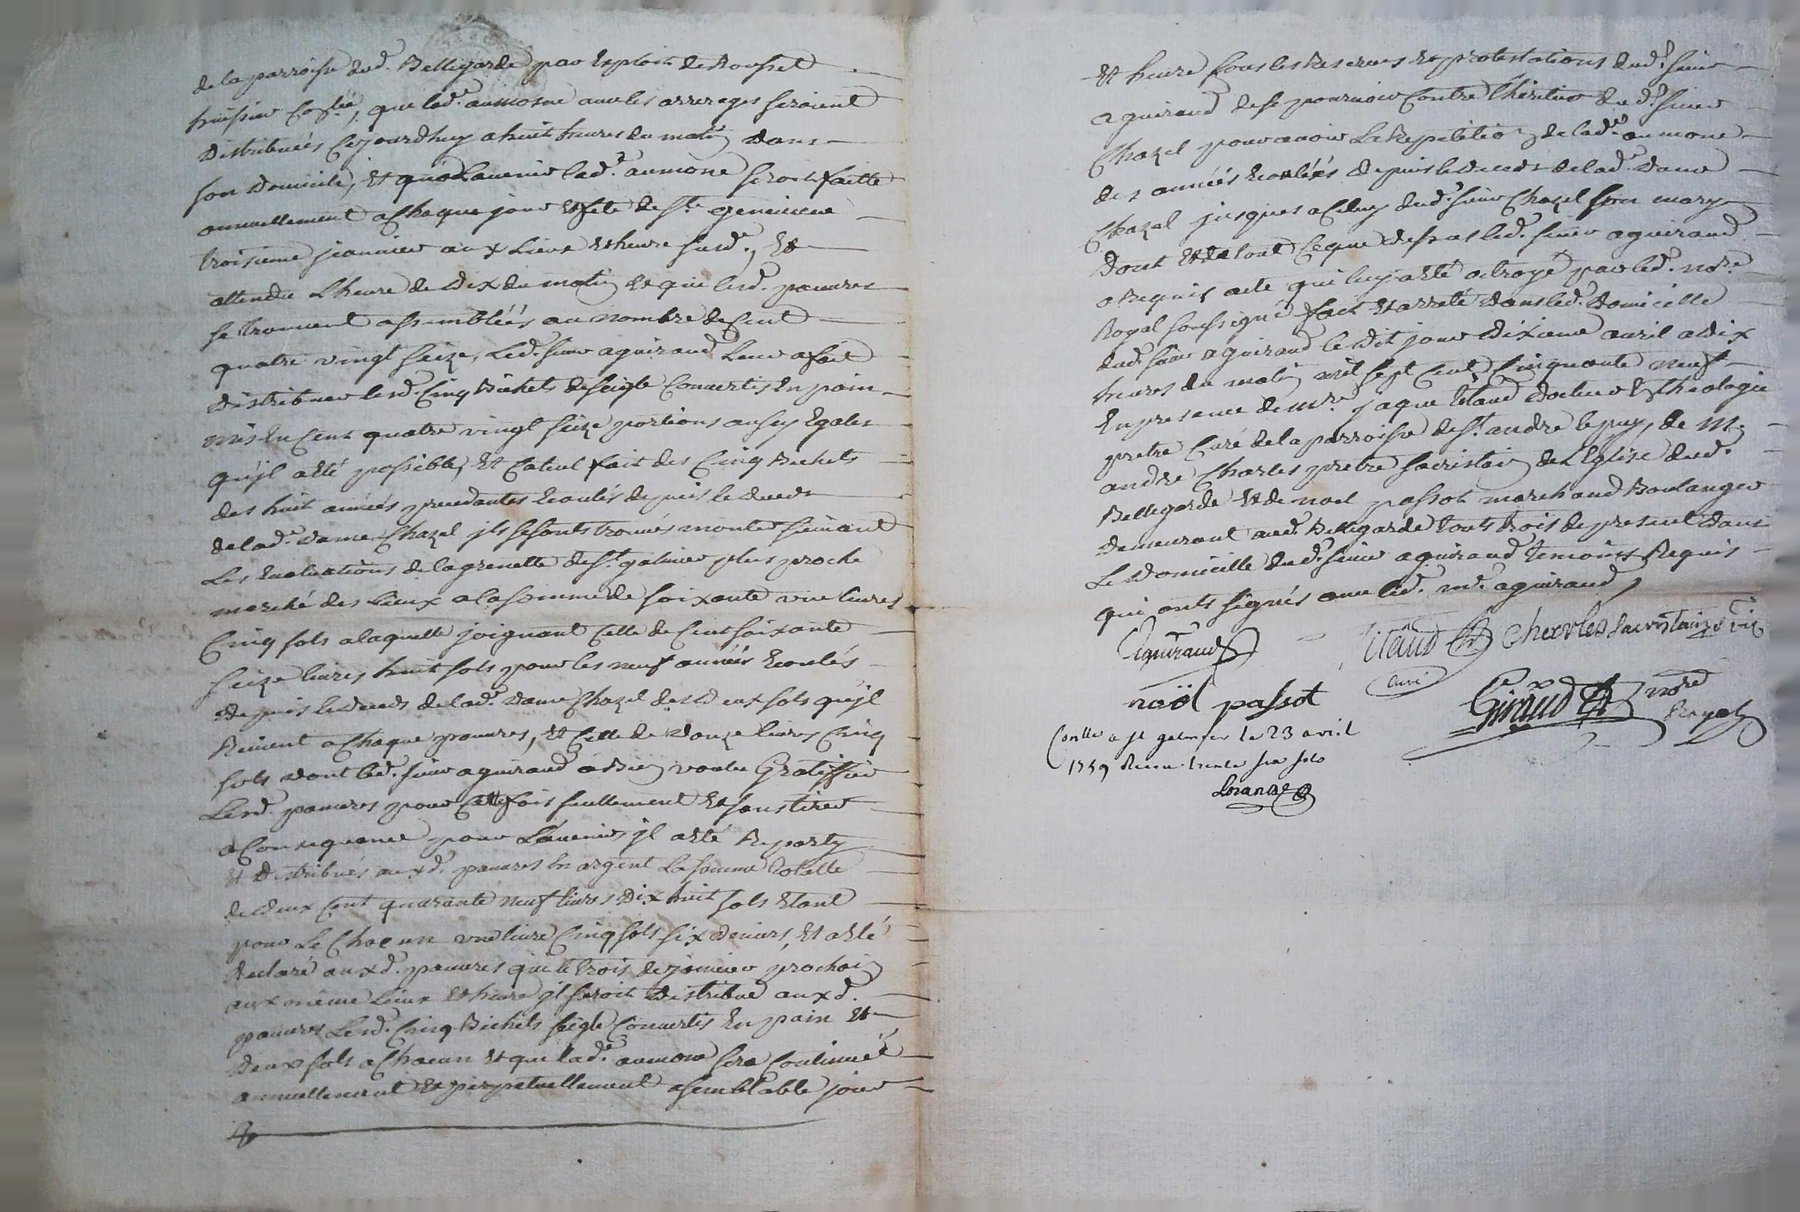 de la parroisse dud. Bellegarde par Exploit de Rousset
huissier , que lad.e aumosne avec les arrerages seroient
distribués Cejourdhuy a huit heures du matin dans
son domicile, Et qua Lavenir lad.e aumone seroit faitte
annuellement a Chaque jour Et fete de Ste genevieve
troisieme janvier aux Lieux Et heure susd., Et
attendu L'heure de dix du matin Et que lesd. pauvres
se trouvent assemblées au nombre de Cent
quatre vingt seize, Led. sieur aguiraud Leur a fait
distribuer lesd. Cinq Bichets de seigle Convertis En pain
mis En Cent quatre vingt seize portions aussy Egales
qu'jl a Eté possible, Et Calcul fait des Cinq Bichets
des huit années precedantes Ecoulés depuis le deceds
de lad.e dame Chazel jls se sonts trouvés monter suivant
Les Evaluations de la grenette de St galmier plus proche
marché des Lieux a la somme de soixante une livres
Cinq sols a laquelle joignant Celle de Cent soixante
seize livres huit sols pour les neuf années Ecoulés
depuis le deceds de lad.e dame Chazel des deux sols qu'jl
Revient a Chaque pauvres, Et Celle de douze livres Cinq
sols dont led. sieur aguiraud a Bien voulu Gratiffier
Lesd. pauvres pour Cette fois seullement Et sans tirer
a Consequence pour L'avenir, jl a Eté Reparty
Et distribués auxd. pauvres En argent La somme totalle
de deux Cent quarante neuf livres dix huit sols Etant
pour Le Chacun une livre Cinq sols six deniers, Et a Eté
declaré auxd. pauvres que le trois de janvier prochain
aux même Lieux Et heure jl seroit distribué auxd.
pauvres Lesd. Cinq Bichets seigle Convertis En pain Et
deux sols a Chacun Et que lad.e aumone sera Continuée
annuellement Et perpetuellement a semblable jour
Et heure sous les Reserves Et protestations dud. sieur
aguiraud de se pourvoir Contre l'heritier dud. sieur
Chazel pour avoir La Repetition de lad.e aumone
des années Ecoulées depuis le deceds de lad.e dame
Chazel jusques a Celuy dud. sieur Chazel son mary
dont Et de tout Ce que dessus led. sieur aguiraud
a Requis acte qui luy a Eté octroyé par led. nore
Royal soussigné fait Et arreté dans led. domicille
dud. sieur aguiraud Ce dit jour dixieme avril a dix
heures du matin mil sept Cent Cinquante neuf
En presence de mre jaque docteur En theologie
pretre Curé de la parroisse de St andré le puy, de Me
andré Charles pretre sacristain de L'Eglise dud.
Bellegarde Et de noel passot marchand Boulanger
demeurant aud. Bellegarde touts trois de present dans
Le domicille dud. sieur aguiraud temoins Requis
qui onts signés avec led. mr. aguiraud
aguiraud Charles sacristain
curé
noël passot Giraud nore
Royal
Conllé a St galmier le 23 avril
1759 Recu trente six sols